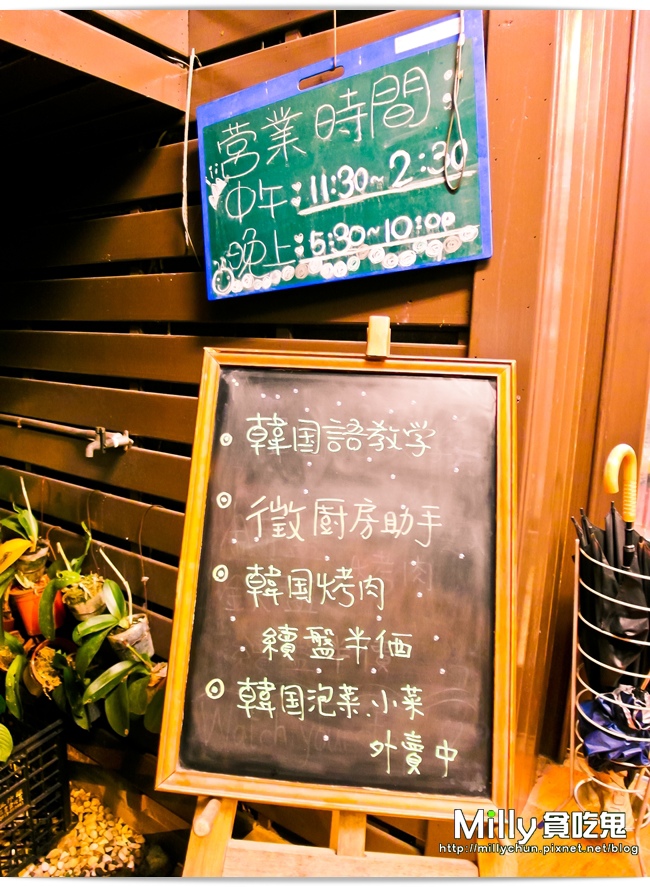 営業時間:
中午:11:30~2:30
晚上:5:30~10:00
韓国語教学
徵厨房助手
韓国烤肉
續盤半価
韓国泡菜、小菜
外賣中
Milly貪吃鬼
http://millychun.pixnet.net/blog